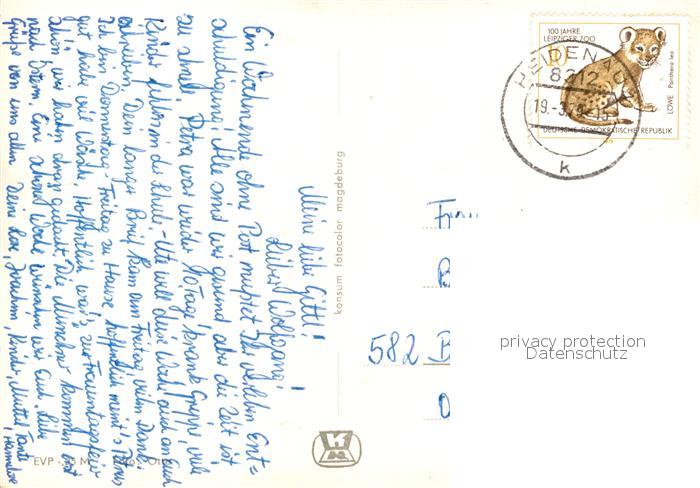 Meine liebe Gittl!
Lieber Wolfgang!
Ein Wochenende ohne Post mußtet Ihr erleben. Ent=
schuldigung! Alle sind wir gesund aber die Zeit ist
zu schnell. Petra war wieder 10 Tage krank Grippe, viele
Kinder fehlen in der Schule. Ute will diese Woche auch an Euch
schreiben. Dein langer Brief kam am Freitag vielen Dank.
Ich bin Donnerstag - Freitag zu Hause, hoffentlich
gut habe viel Wäsche. Hoffentlich war's zur Frauentagsfeier
schön, wir haben daran gedacht. Die kommen erst
nach Ostern. Eine schöne Woche wünschen wir Euch. Liebe
Grüße von uns allen Deine Joachim, Kinder, Mutti, Tante
Hannelore
EVP -
konsum fotocolor magdeburg
100 JAHRE
LEIPZIGER ZOO
10
LÖWE Panthera leo
DEUTSCHE DEMOKRATISCHE REPUBLIK
HEIDENAU
8312
19.-3.79-15
k
Frau
B
582 B
privacy protection
Datenschutz